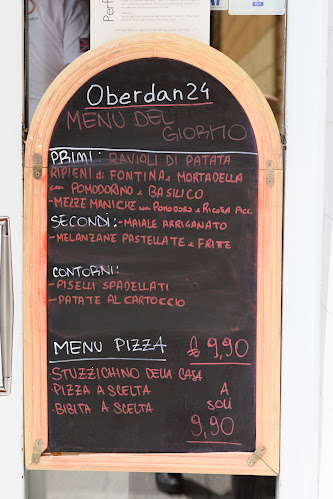 Perf
Oberdan24
MENU DEL
GIORNO
PRIMI: RAVIOLI DI PATATA
RIPIENI di FONTINA e MORTADELLA
con POMODORINO e BASILICO
-MEZZE MANICHE con POMODORO e RICOTTA PICC.
SECONDI:-MAIALE ARRIGANATO
-MELANZANE PASTELLATE e FRITTE
CONTORNI:
-PISELLI SPADELLATI
-PATATE AL CARTOCCIO
MENU PIZZA € 9,90
·STUZZICHINO DELLA CASA
·PIZZA A SCELTA A
·BIBITA A SCELTA SOLI
9,90